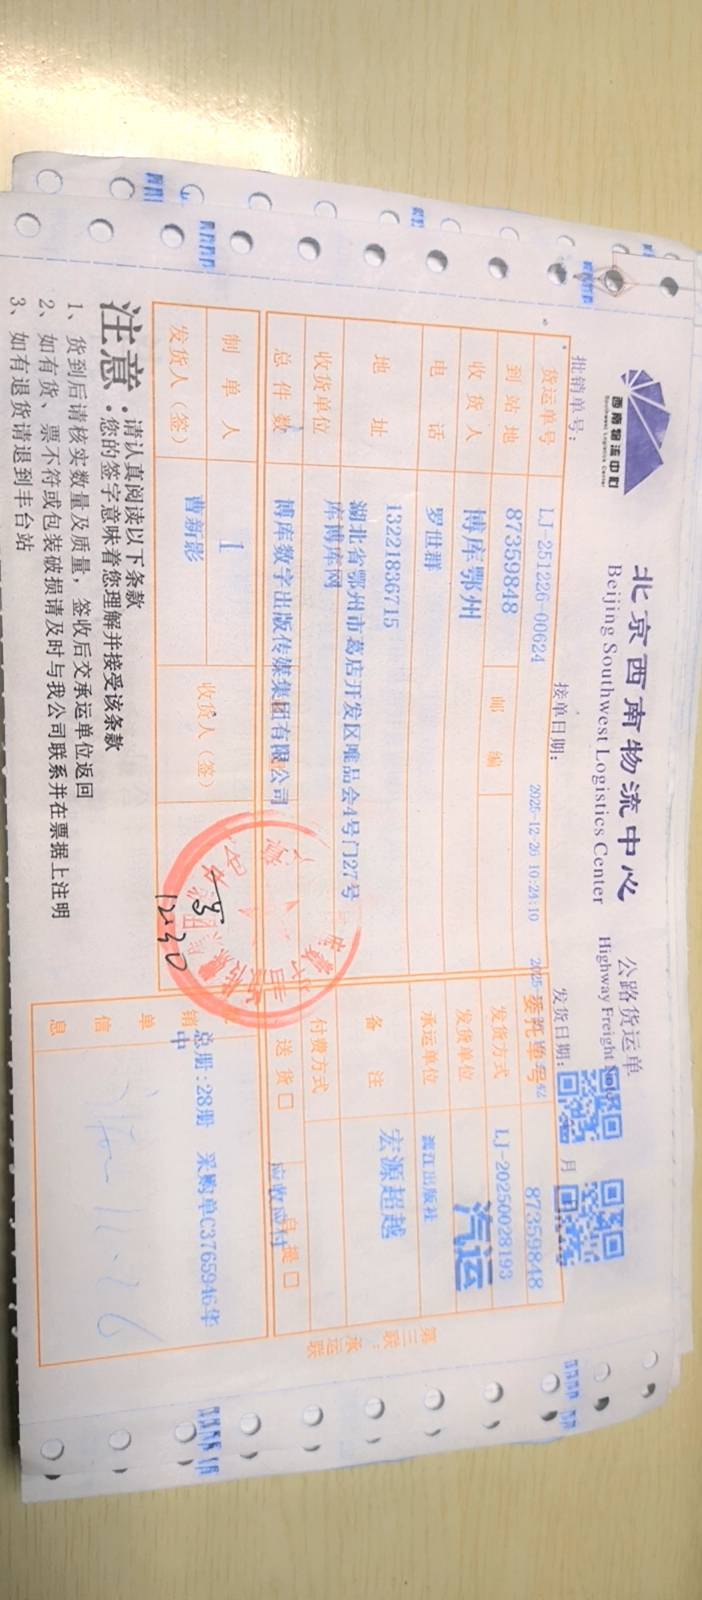 西南物流中心
Southwest Logistics Center
北京西南物流中心
Beijing Southwest Logistics Center
公路货运单
Highway Freight
批销单号：
接单日期：
2025-12-26 10:24:10
发货日期：
月
货运单号
LJ-251226-00624
委托单号
87359848
到站地
87359848
邮编
发货方式
LJ-20250028193
收货人
博库鄂州
发货单位
汽运
电话
罗世群
承运单位
漓江出版社
地址
13221836715
备注
宏源超越
收货单位
湖北省鄂州市葛店开发区唯品会4号门27号
库博库网
付费方式
总件数
博库数字出版传媒集团有限公司
送货□
自提□
应收应付
制单人
1
收货人（签）
发货人（签）
曹新影
12.30
销
单
信
息
总册：28册 采购单C3765946华
中
第三联：承运联
注意：
请认真阅读以下条款
您的签字意味着您理解并接受该条款
1、货到后请核实数量及质量，签收后交承运单位返回
2、如有货、票不符或包装破损请及时与我公司联系并在票据上注明
3、如有退货请退到丰台站